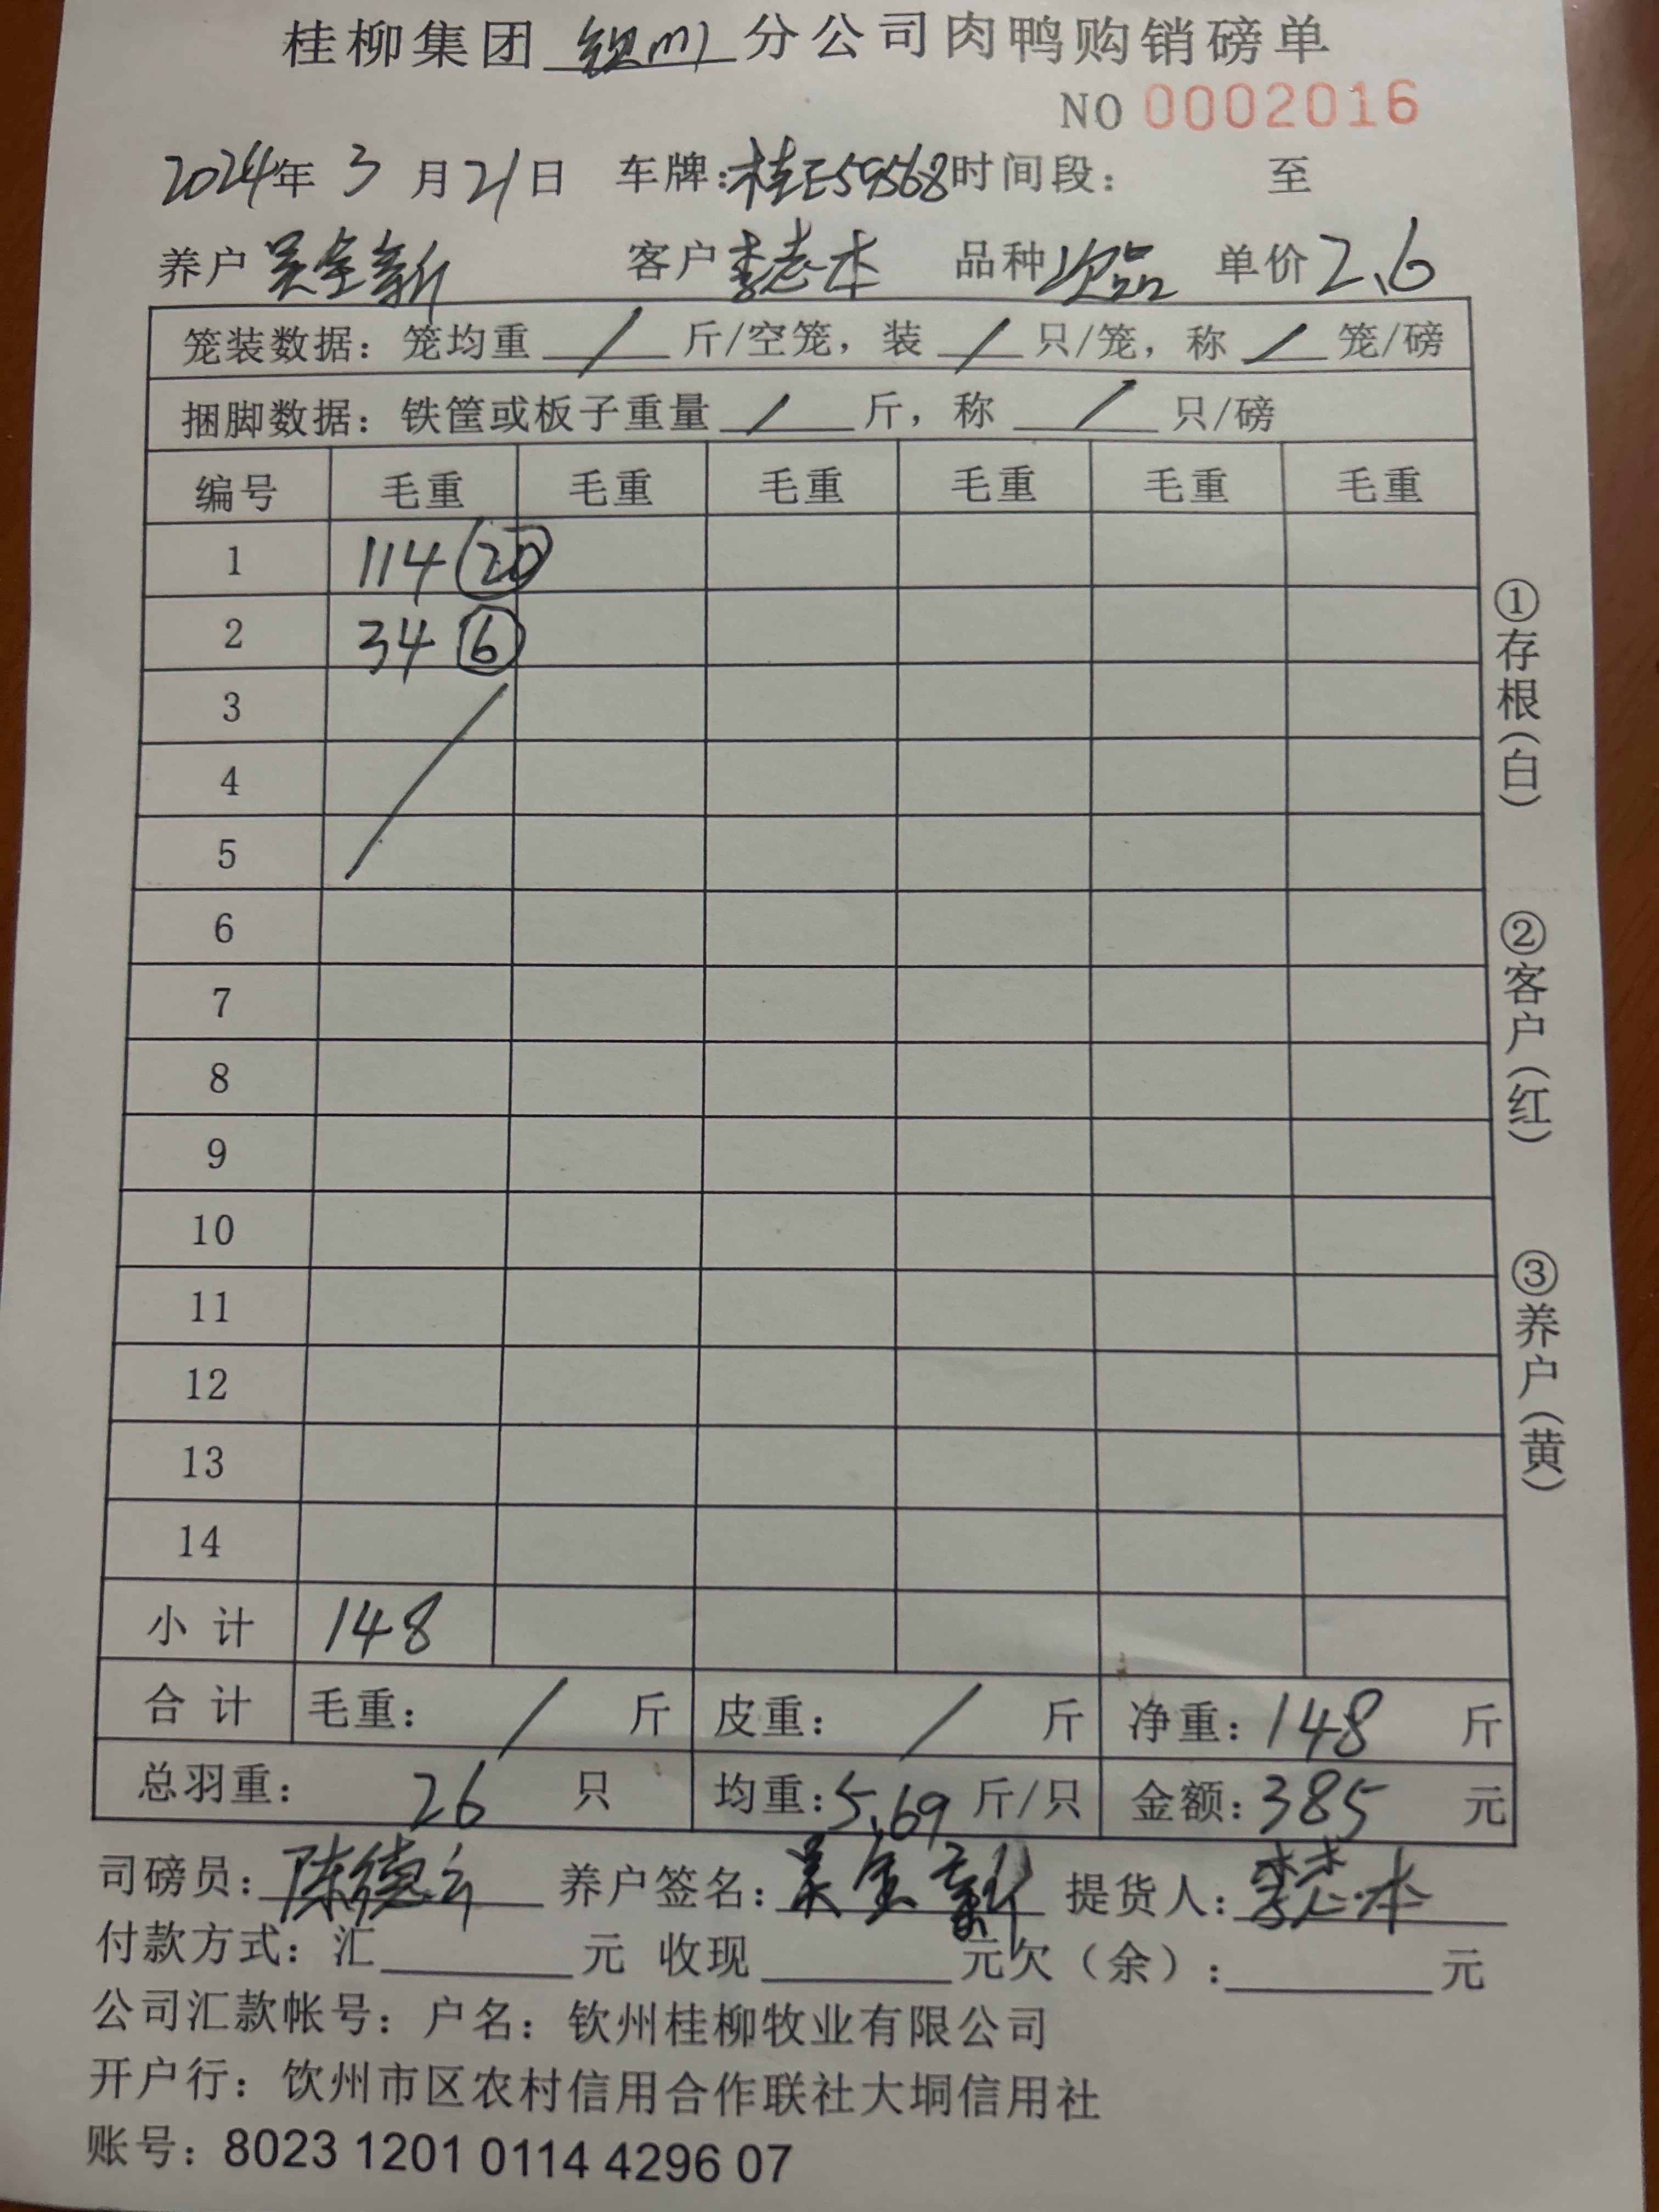 桂柳集团 钦州 分公司肉鸭购销磅单
NO 0002016
2024年 3 月 21 日 车牌:桂E59568 时间段: 至
养户 吴金新 客户 李志本 品种 次品 单价 2.6
笼装数据: 笼均重 / 斤/空笼, 装 / 只/笼, 称 / 笼/磅
捆脚数据: 铁筐或板子重量 / 斤, 称 / 只/磅
编号 毛重 毛重 毛重 毛重 毛重 毛重
1 114 (20)
2 34 (6)
3
4
5
6
7
8
9
10
11
12
13
14
小 计 148
合 计 毛重: / 斤 皮重: / 斤 净重: 148 斤
总羽重: 26 只 均重: 5.69 斤/只 金额: 385 元
司磅员: 陈德 养户签名: 吴金新 提货人: 李志本
付款方式: 汇 元 收现 元 欠(余): 元
公司汇款帐号: 户名: 钦州桂柳牧业有限公司
开户行: 钦州市区农村信用合作联社大垌信用社
账号: 8023 1201 0114 4296 07
①存根(白)
②客户(红)
③养户(黄)